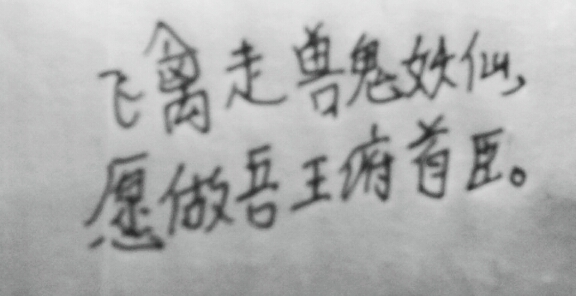 飞禽走兽鬼妖仙,
愿做吾王俯首臣。